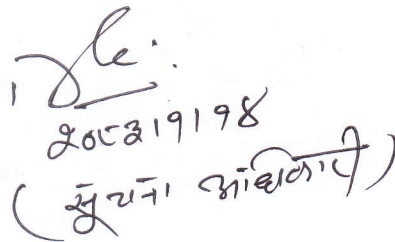 २०८३।१।१४
(सूचना अधिकारी)